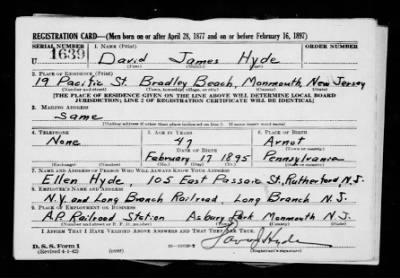 REGISTRATION CARD—(Men born on or after April 28, 1877 and on or before February 16, 1897)
SERIAL NUMBER 1. NAME (Print) ORDER NUMBER
U 1639 David James Hyde
(First) (Middle) (Last)
2. PLACE OF RESIDENCE (Print)
19 Pacific St. Bradley Beach, Monmouth, New Jersey
(Number and street) (Town, township, village, or city) (County) (State)
[THE PLACE OF RESIDENCE GIVEN ON THE LINE ABOVE WILL DETERMINE LOCAL BOARD
JURISDICTION; LINE 2 OF REGISTRATION CERTIFICATE WILL BE IDENTICAL]
3. MAILING ADDRESS
Same
[Mailing address if other than place indicated on line 2. If same insert word same]
4. TELEPHONE 5. AGE IN YEARS 6. PLACE OF BIRTH
None 47 Arnot
DATE OF BIRTH (Town or county)
February 17 1895 Pennsylvania
(Exchange) (Number) (Mo.) (Day) (Yr.) (State or country)
7. NAME AND ADDRESS OF PERSON WHO WILL ALWAYS KNOW YOUR ADDRESS
Ellen Hyde, 105 East Passaic St, Rutherford, N.J.
8. EMPLOYER'S NAME AND ADDRESS
N.Y. and Long Branch Railroad, Long Branch N.J.
9. PLACE OF EMPLOYMENT OR BUSINESS
A.P. Railroad Station Asbury Park Monmouth N.J.
(Number and street or R. F. D. number) (Town) (County) (State)
I AFFIRM THAT I HAVE VERIFIED ABOVE ANSWERS AND THAT THEY ARE TRUE.
D. S. S. Form 1
(Revised 4-1-42) (over)